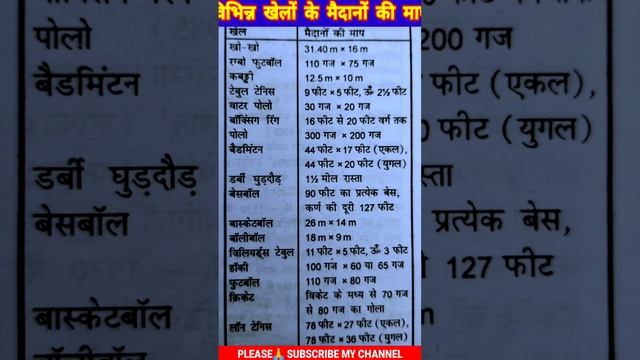 विभिन्न खेलों के मैदानों की माप
खेल मैदानों की माप
खो-खो 31.40 m × 16 m
रग्बी फुटबॉल 110 गज × 75 गज
कबड्डी 12.5 m × 10 m
टेबुल टेनिस 9 फीट × 5 फीट, ऊँ 2½ फीट
वाटर पोलो 30 गज × 20 गज
बॉक्सिंग रिंग 16 फीट से 20 फीट वर्ग तक
पोलो 300 गज × 200 गज
बैडमिंटन 44 फीट × 17 फीट (एकल),
44 फीट × 20 फीट (युगल)
डर्बी घुड़दौड़ 1½ मील रास्ता
बेसबॉल 90 फीट का प्रत्येक बेस,
कर्ण की दूरी 127 फीट
बास्केटबॉल 26 m × 14 m
बॉलीबॉल 18 m × 9 m
विलियर्ड्स टेबुल 11 फीट × 5 फीट, ऊँ 3 फीट
हॉकी 100 गज × 60 या 65 गज
फुटबॉल 110 गज × 80 गज
क्रिकेट विकेट के मध्य से 70 गज
से 80 गज का गोला
लॉन टेनिस 78 फीट × 27 फीट (एकल),
78 फीट × 36 फीट (युगल)
PLEASE🙏 SUBSCRIBE MY CHANNEL
पोलो
बैडमिंटन
डर्बी घुड़दौड़
बेसबॉल
बास्केटबॉल
200 गज
फीट (एकल),
फीट (युगल)
प्रत्येक बेस,
127 फीट